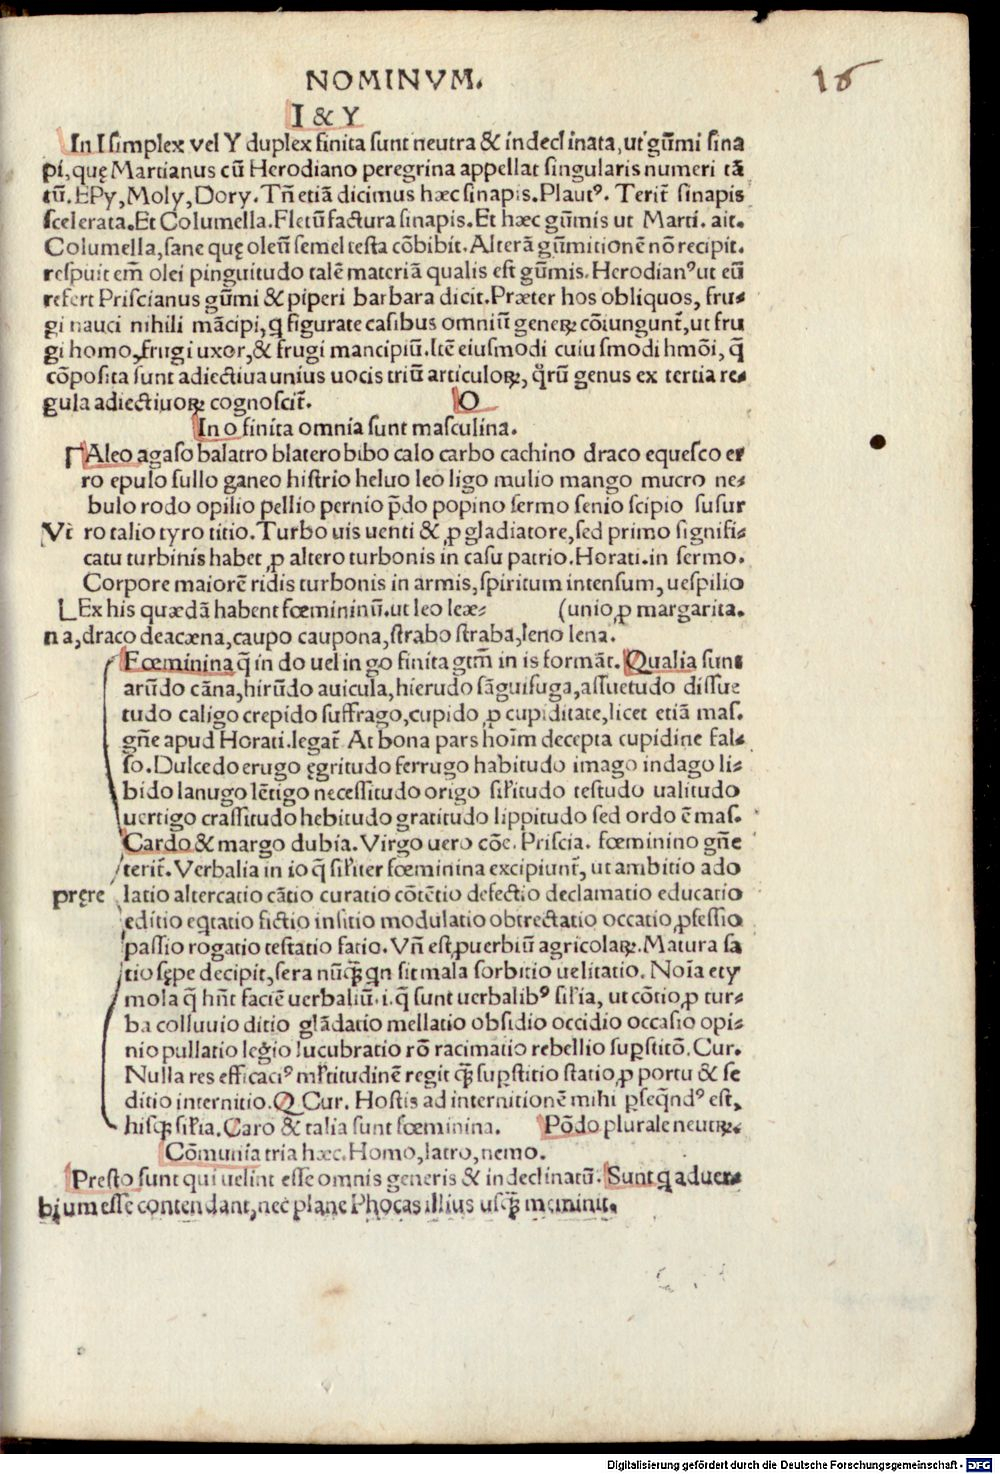 NOMINVM.
16
I & Y
In I simplex vel Y duplex finita sunt neutra & indeclinata, ut gūmi sina
pi, quę Martianus cū Herodiano peregrina appellat singularis numeri tā
tū. EPy, Moly, Dory. Tñ etiā dicimus hæc sinapis. Plautꝰ. Terit̄ sinapis
scelerata. Et Columella. Fletū factura sinapis. Et hæc gūmis ut Marti. ait.
Columella, sane quę oleū semel testa cōbibit. Alterā gūmitionē nō recipit.
respuit em̄ olei pinguitudo talē materiā qualis est gūmis. Herodianꝰ ut eū
refert Priscianus gūmi & piperi barbara dicit. Præter hos obliquos, fru⸗
gi nauci nihili mācipi, q figurate casibus omniū generꝝ cōiungunt̄, ut fru
gi homo, frugi uxor, & frugi mancipiū. Itē eiusmodi cuiusmodi hmōi, q̄
cōposita sunt adiectiva unius uocis triū articulorꝝ, q̄rū genus ex tertia re⸗
gula adiectiuorꝝ cognoscit̄.
O
In o finita omnia sunt masculina.
Aleo agaso balatro blatero bibo calo carbo cachino draco equesco er
ro epulo fullo ganeo histrio heluo leo ligo mulio mango mucro ne⸗
bulo rodo opilio pellio pernio p̄do popino sermo senio scipio susur
Vt̄ ro talio tyro titio. Turbo uis uenti & ꝓ gladiatore, sed primo signifi⸗
catu turbinis habet ꝓ altero turbonis in casu patrio. Horati. in sermo.
Corpore maiorē ridis turbonis in armis, spiritum intensum, uespilio
Ex his quædā habent fœmininū. ut leo leæ⸗ (unio, ꝓ margarita.
na, draco deacæna, caupo caupona, strabo straba, leno lena.
Fœminina q̄ in do uel in go finita gt̄m in is formāt. Qualia sunt
arūdo cāna, hirūdo auicula, hierudo sāguisuga, assuetudo dissue
tudo caligo crepido suffrago, cupido ꝓ cupiditate, licet etiā mas.
gñe apud Horati. legat̄ At bona pars hoīm decepta cupidine fal⸗
so. Dulcedo erugo ęgritudo ferrugo habitudo imago indago li⸗
bido lanugo lētigo necessitudo origo silitudo testudo ualitudo
uertigo crassitudo hebitudo gratitudo lippitudo sed ordo ē mas.
Cardo & margo dubia. Virgo uero cōe. Priscia. fœminino gñe
terit̄. Verbalia in io q̄ siliter fœminina excipiunt̄, ut ambitio ado
pręre latio altercatio cātio curatio cōtētio defectio declamatio educatio
editio eqtatio fictio insitio modulatio obtrectatio occatio ꝓfessio
passio rogatio testatio satio. Vñ est ꝓuerbiū agricolarꝝ. Matura sa
tio sępe decipit, sera nūq̄ꝫ qn sit mala sorbitio uelitatio. Noīa ety
mola q̄ hñt faciē uerbaliū. i. q̄ sunt uerbalibꝰ silia, ut cōtio ꝓ tur⸗
ba colluuio ditio glādatio mellatio obsidio occidio occasio opi⸗
nio pullatio legio lucubratio rō racimatio rebellio suꝑstitō. Cur.
Nulla res efficaciꝰ mltitudinē regit q̄ꝫ suꝑstitio statio ꝓ portu & se
ditio internitio. Q Cur. Hostis ad internitionē mihi ꝑseqndꝰ est,
hisqꝫ silia. Caro & talia sunt fœminina. Pōdo plurale neutrꝝ.
Cōmunia tria hæc. Homo, latro, nemo.
Presto sunt qui uelint esse omnis generis & indeclinatū. Sunt q aduer⸗
bium esse contendant, nec plane Phocas illius usqꝫ meminit.
Digitalisierung gefördert durch die Deutsche Forschungsgemeinschaft - DFG